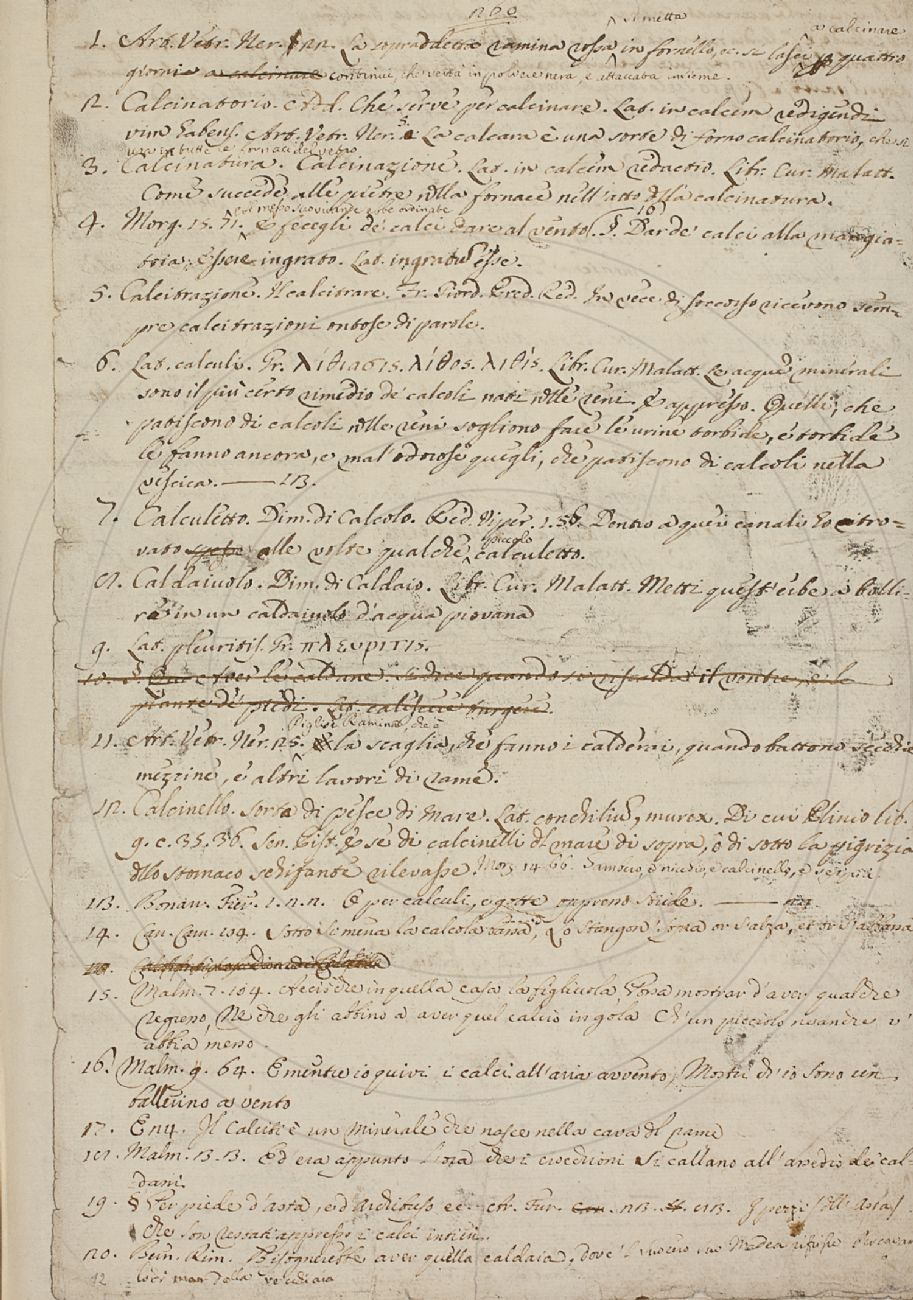 200
si metta
a calcinare
1. Art. Vetr. Ner. 1. 22. La sopraddetta ramina rossa in fornello, ec. si lasci quattro
giorni a calcinare continui, che verrà in polvere nera, e attaccata insieme.
2. Calcinatorio. Add. Che serve per calcinare. Lat. in calcem redigendi
vim habens. Art. Vetr. Ner. 5. La calcara è una sorte di forno calcinatorio, che si
usa in tutte le fornaci del vetro
3. Calcinatura. Calcinazione. Lat. in calcem redactio. Libr. Cur. Malatt.
Come succede alle pietre nella fornace nell'atto della calcinatura.
4. Morg. 15. 71. e fecegli de' calci dare al vento. §. Dar de' calci alla mangia=
toia: essere ingrato. Lat. ingratum esse.
5. Calcitrazione. Il calcitrare. Fr. Giord. Pred. Red. In vece di soccorso ricevono sem=
pre calcitrazioni ontose di parole.
6. Lat. calculi. Gr. λιθιασις. λίθος. λιθίς. Libr. Cur. Malatt. Le acque minerali
sono il più certo rimedio de' calcoli nati nelle reni. E appresso. Quelli, che
patiscono di calcoli nelle reni sogliono fare le urine torbide, e torbide
le fanno ancora, e mal' odorose quegli, che patiscono di calcoli nella
vescica. —— 13.
7. Calculetto. Dim. di Calcolo. Red. Viper. 1. 56. Dentro a quei canali ho ritro=
vato spesso alle volte qualche piccolo calculetto.
8. Caldaiuolo. Dim. di Caldaio. Libr. Cur. Malatt. Metti quest' erbe a bolli=
re in un caldaiuolo d'acqua piovana
9. Lat. pleuritis. Gr. πλευριτις.
piante de' piedi.
11. Art. Vetr. Ner. 25. Piglisi Ramina, che è la scaglia, che fanno i calderai, quando battono secchie
mezzine, e altri lavori di rame.
12. Calcinello. Sorta di pesce di Mare. Lat. conchilium, murex. Di cui Plinio lib.
9. c. 35. 36. Sen. Pist. E se di calcinelli del mare di sopra, o di sotto la pigrizia
dello stomaco schifante rilevasse. Morg. 14. 66.
13. Bonar. Fier. 1. 2. 2. E per calculi, e gotte
14. Can. Carn. 104. Sotto si mena la calcola
15. Malm. 7. 104. Acciò che in quella casa la figliuola Possa mostrar d'aver qualche
regresso, Nè che gli abbino a aver quel calcio in gola Ch'un picciol
abbia meno.
16. Malm. 9. 64. E mentre io quivi i calci all'aria avvento, Mostri ch'io sono un
ballerino a vento
17. Il Calcite è un minerale che nasce nella cava del rame
18. Malm. 13. 13. Ed era appunto l'ora che i crocchioni Si callano all'assedio de' cal-
dani
19. § Per piede d'asta,
Che son restati appresso i calci interi.
20. Bern. Rim. Bisognerebbe aver quella caldaia, dove 'l suocero suo Medea